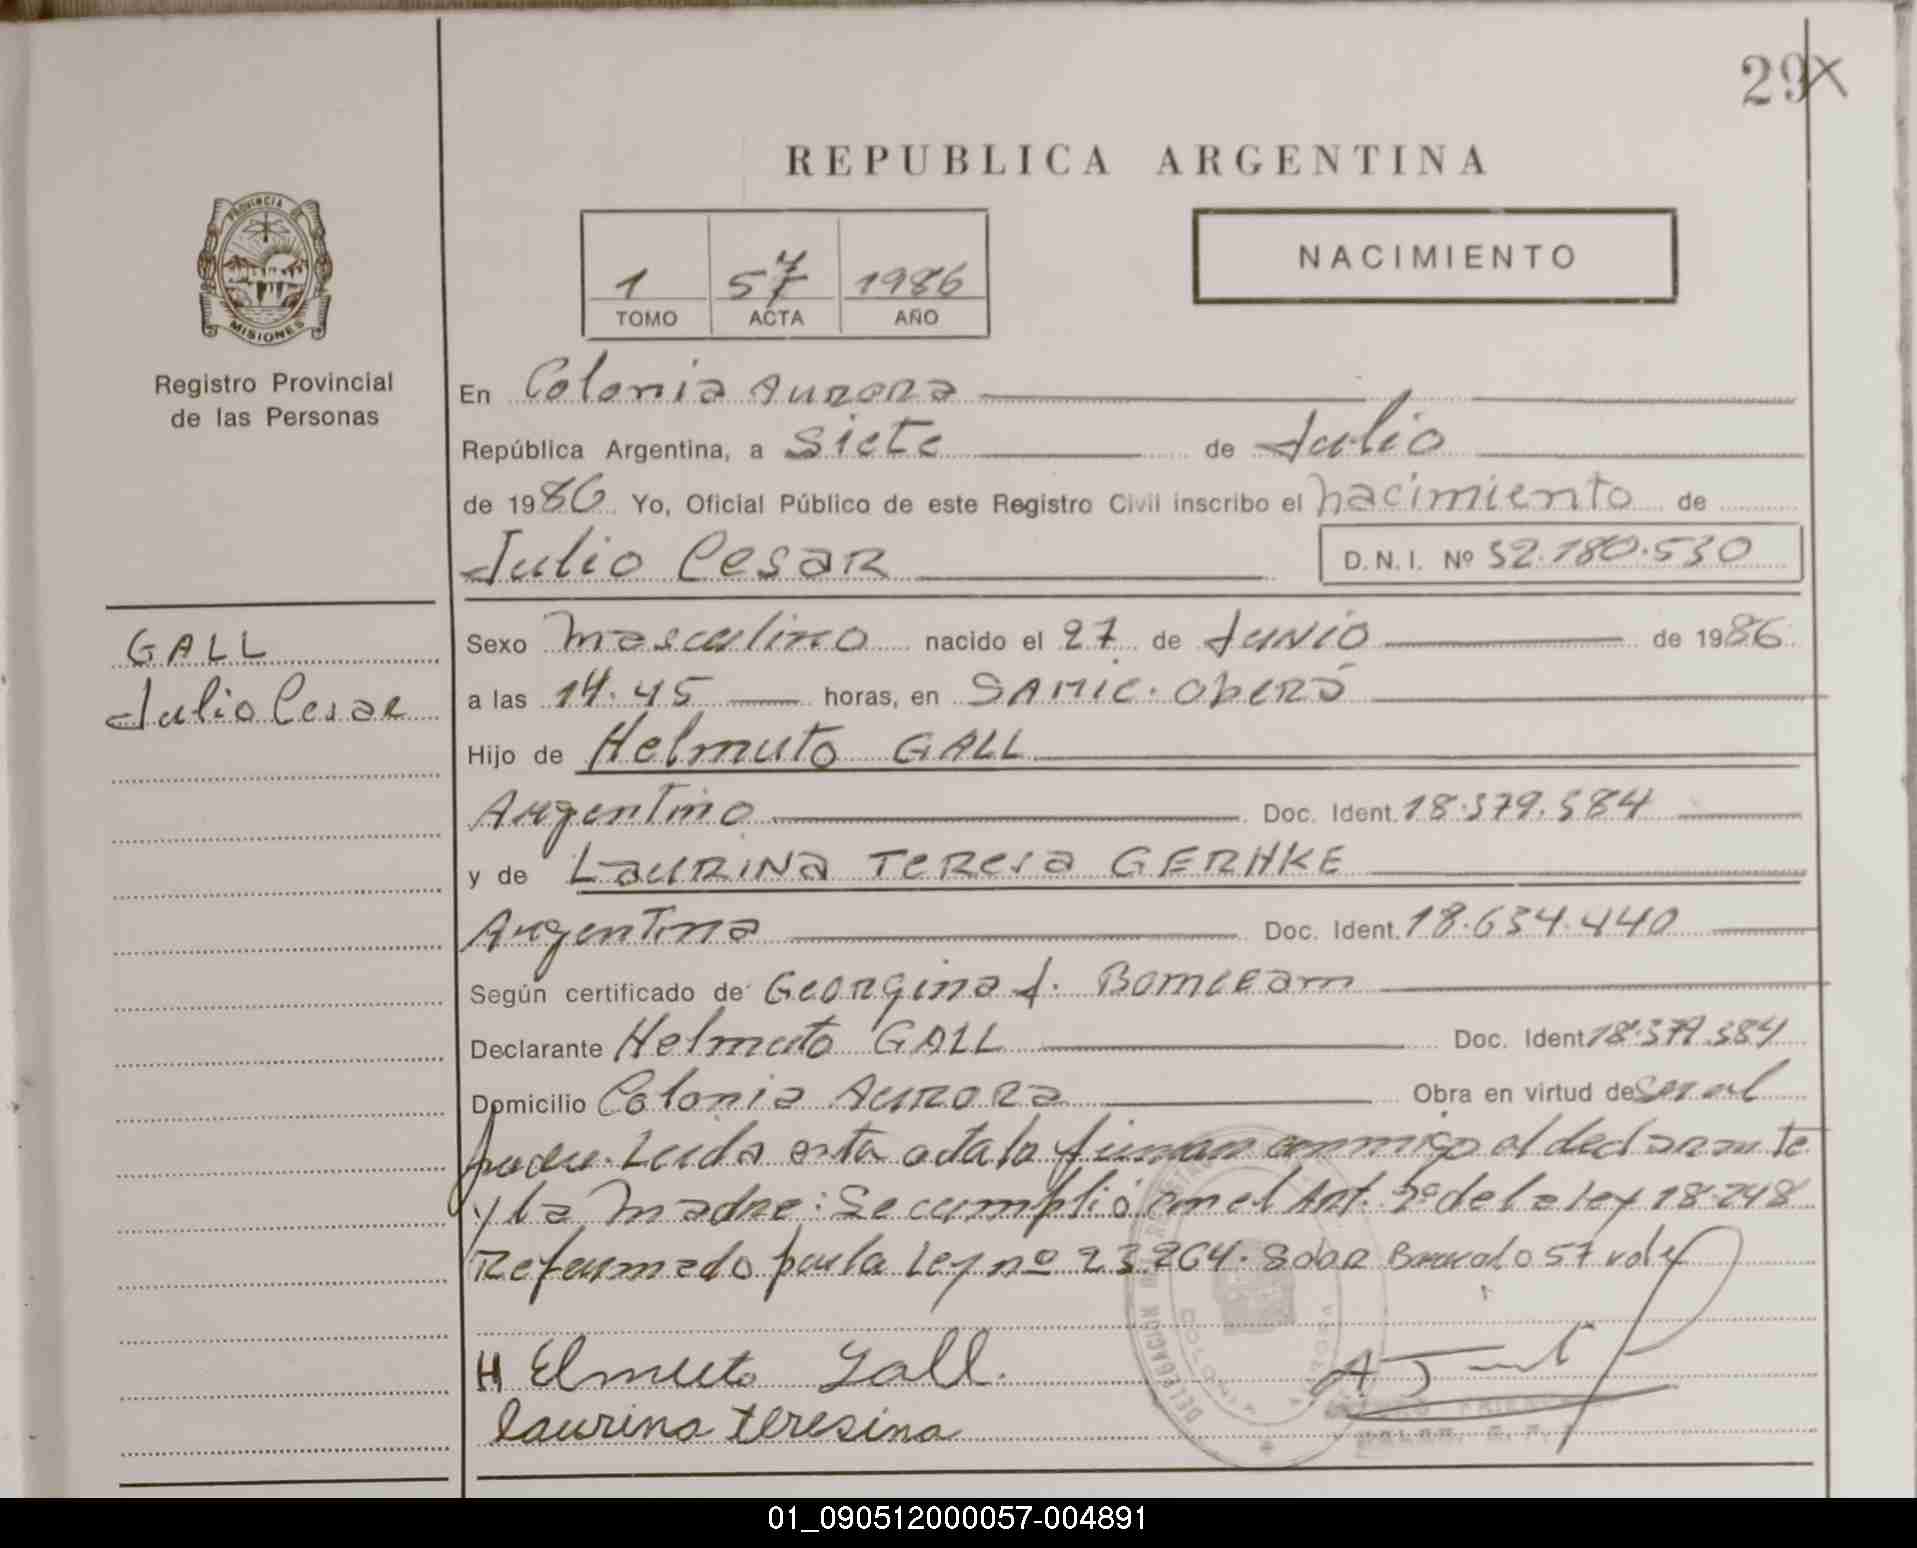 29X
REPUBLICA ARGENTINA
PROVINCIA DE
MISIONES
Registro Provincial
de las Personas
1 57 1986
TOMO ACTA AÑO
NACIMIENTO
En Colonia Aurora
República Argentina, a siete de Julio
de 1986 Yo, Oficial Público de este Registro Civil inscribo el nacimiento de
Julio Cesar D.N.I. Nº 32.180.530
GALL
Julio Cesar
Sexo Masculino nacido el 27 de Junio de 1986
a las 14.45 horas, en SAMIC. Oberá
Hijo de Helmuto GALL
Argentino Doc. Ident. 18.379.384
y de Laurina Teresa GERHKE
Argentina Doc. Ident. 18.634.440
Según certificado de Georgina J.
Declarante Helmuto GALL Doc. Ident 18.379.384
Domicilio Colonia Aurora Obra en virtud de ser el
padre. Leida esta acta la firman conmigo el declarante
y la madre: Se cumplió con el Art. 2º de la ley 18.248
Reformado por la Ley nº 23264. 57 vale
HElmuto Gall.
laurina teresina
DELEGACIÓN REGISTRO
COLONIA AURORA
01_090512000057-004891